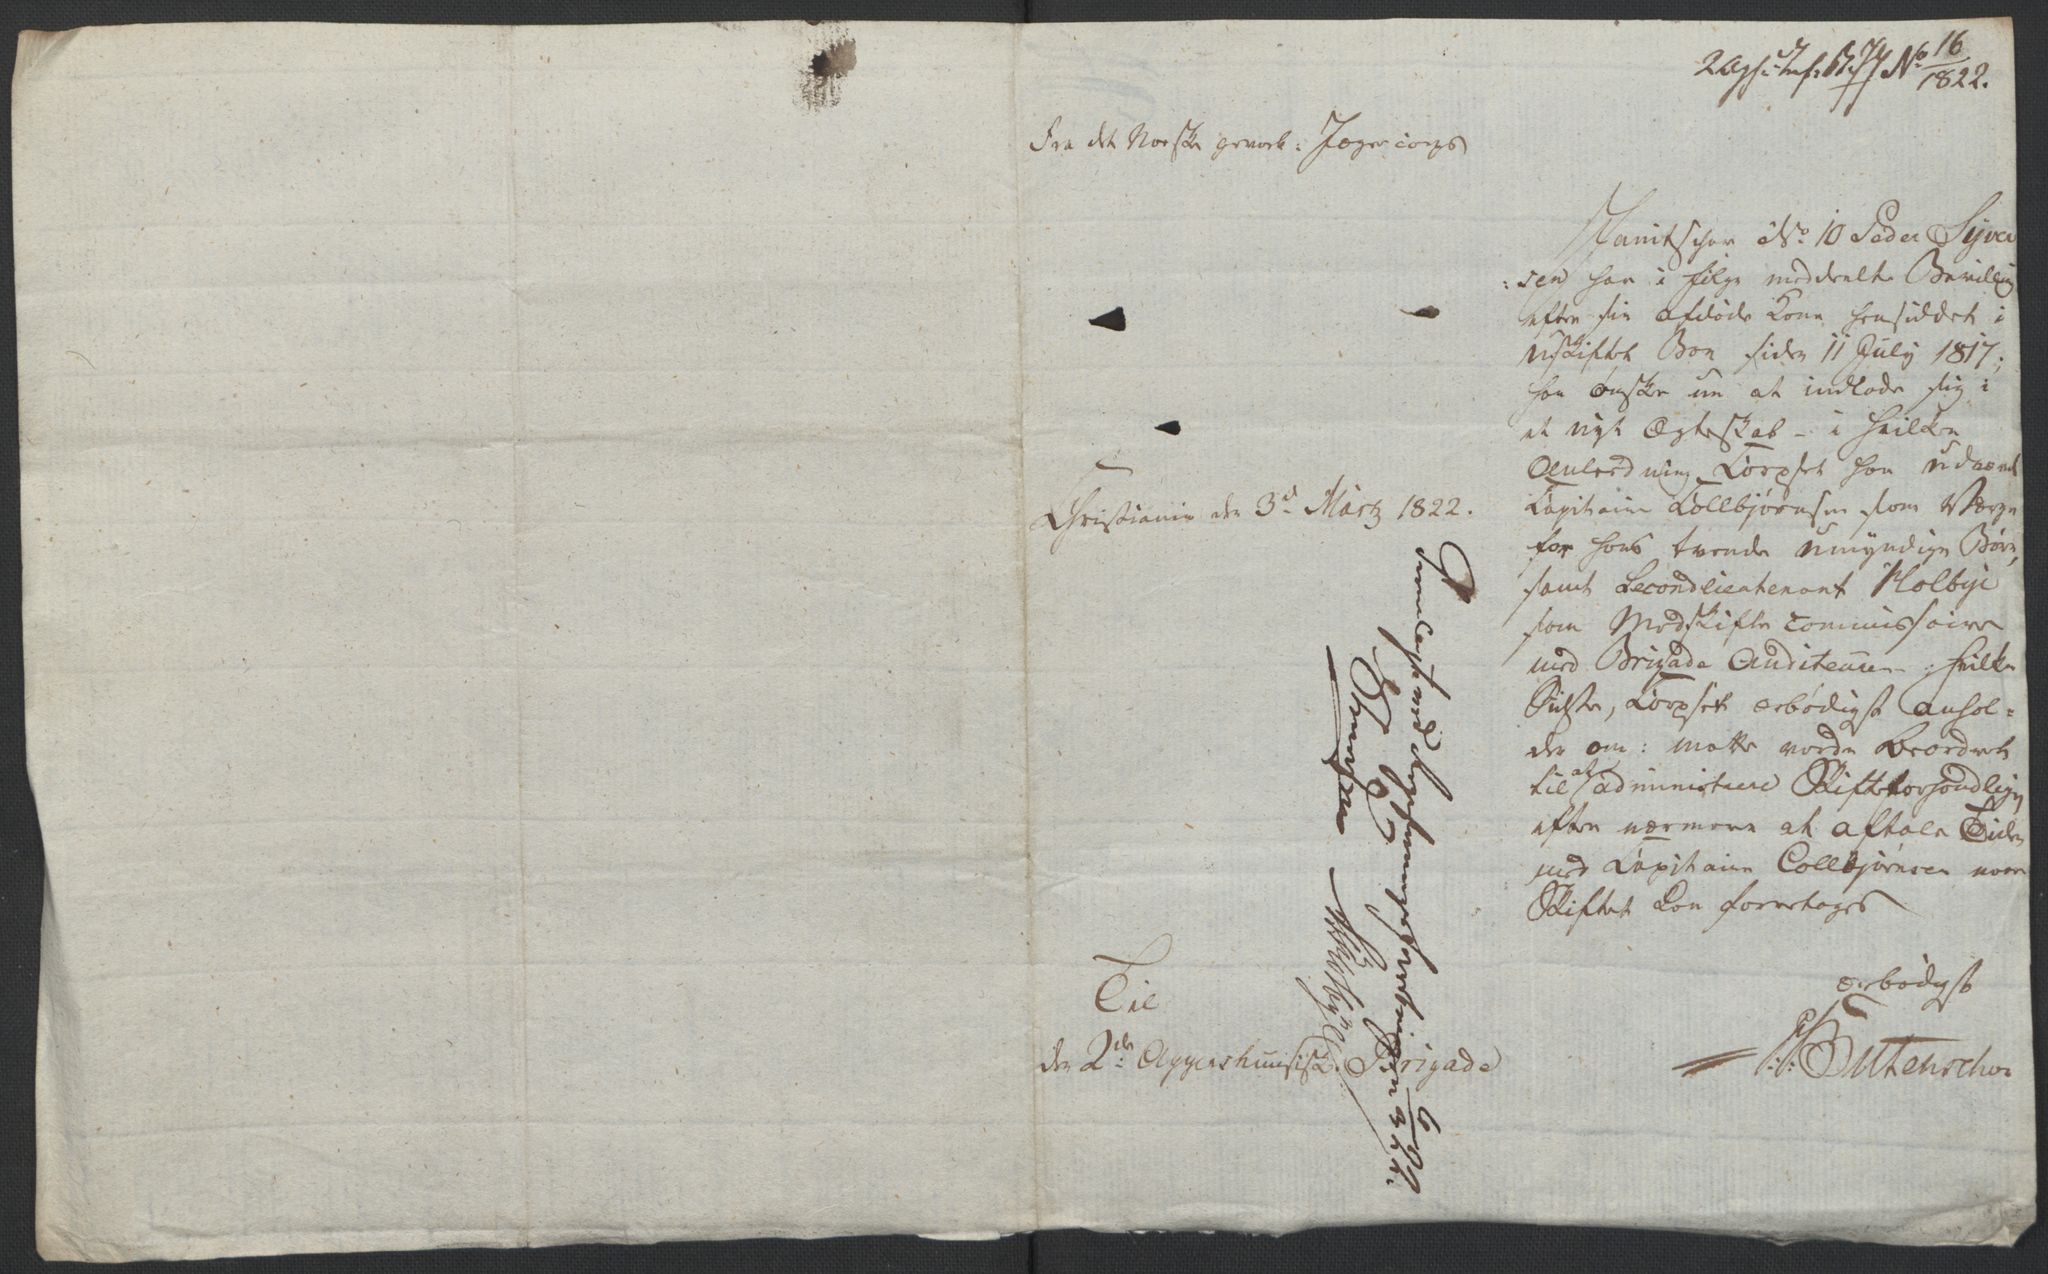 No 16
1822.
Fra det Norske gevorb: Jægercorps
Janitschar No 10 Peder Syver
:sen har i følge meddeelte Bevilling
efter sin afdøde Kone hensiddet i
uskiftet Boe siden 11 July 1817;
han ønsker nu at indlade sig i
et nyt Ægteskab - i hvilken
Anledning Corpset har udnævnt
Capitaine Collbjørnsen som Værge
for hans tvende umyndige Børn,
samt Secondlieutenant Holbye
som Medskifte Commissaire
med Brigade Auditeuren: hvilken
Sidste, Corpset ærbødigst anhol-
der om: maatte vorde beordret
til at administrere Skifteforhandlingen
efter nærmere at aftale Tiden
med Capitaine Collbjørnsen naar
Skiftet kan foretages
ærbødigst
Butenschøn
Christiania den 3d Martz 1822.
Til
den 2de Aggershuusiske Brigade
Fremlagt ved Session